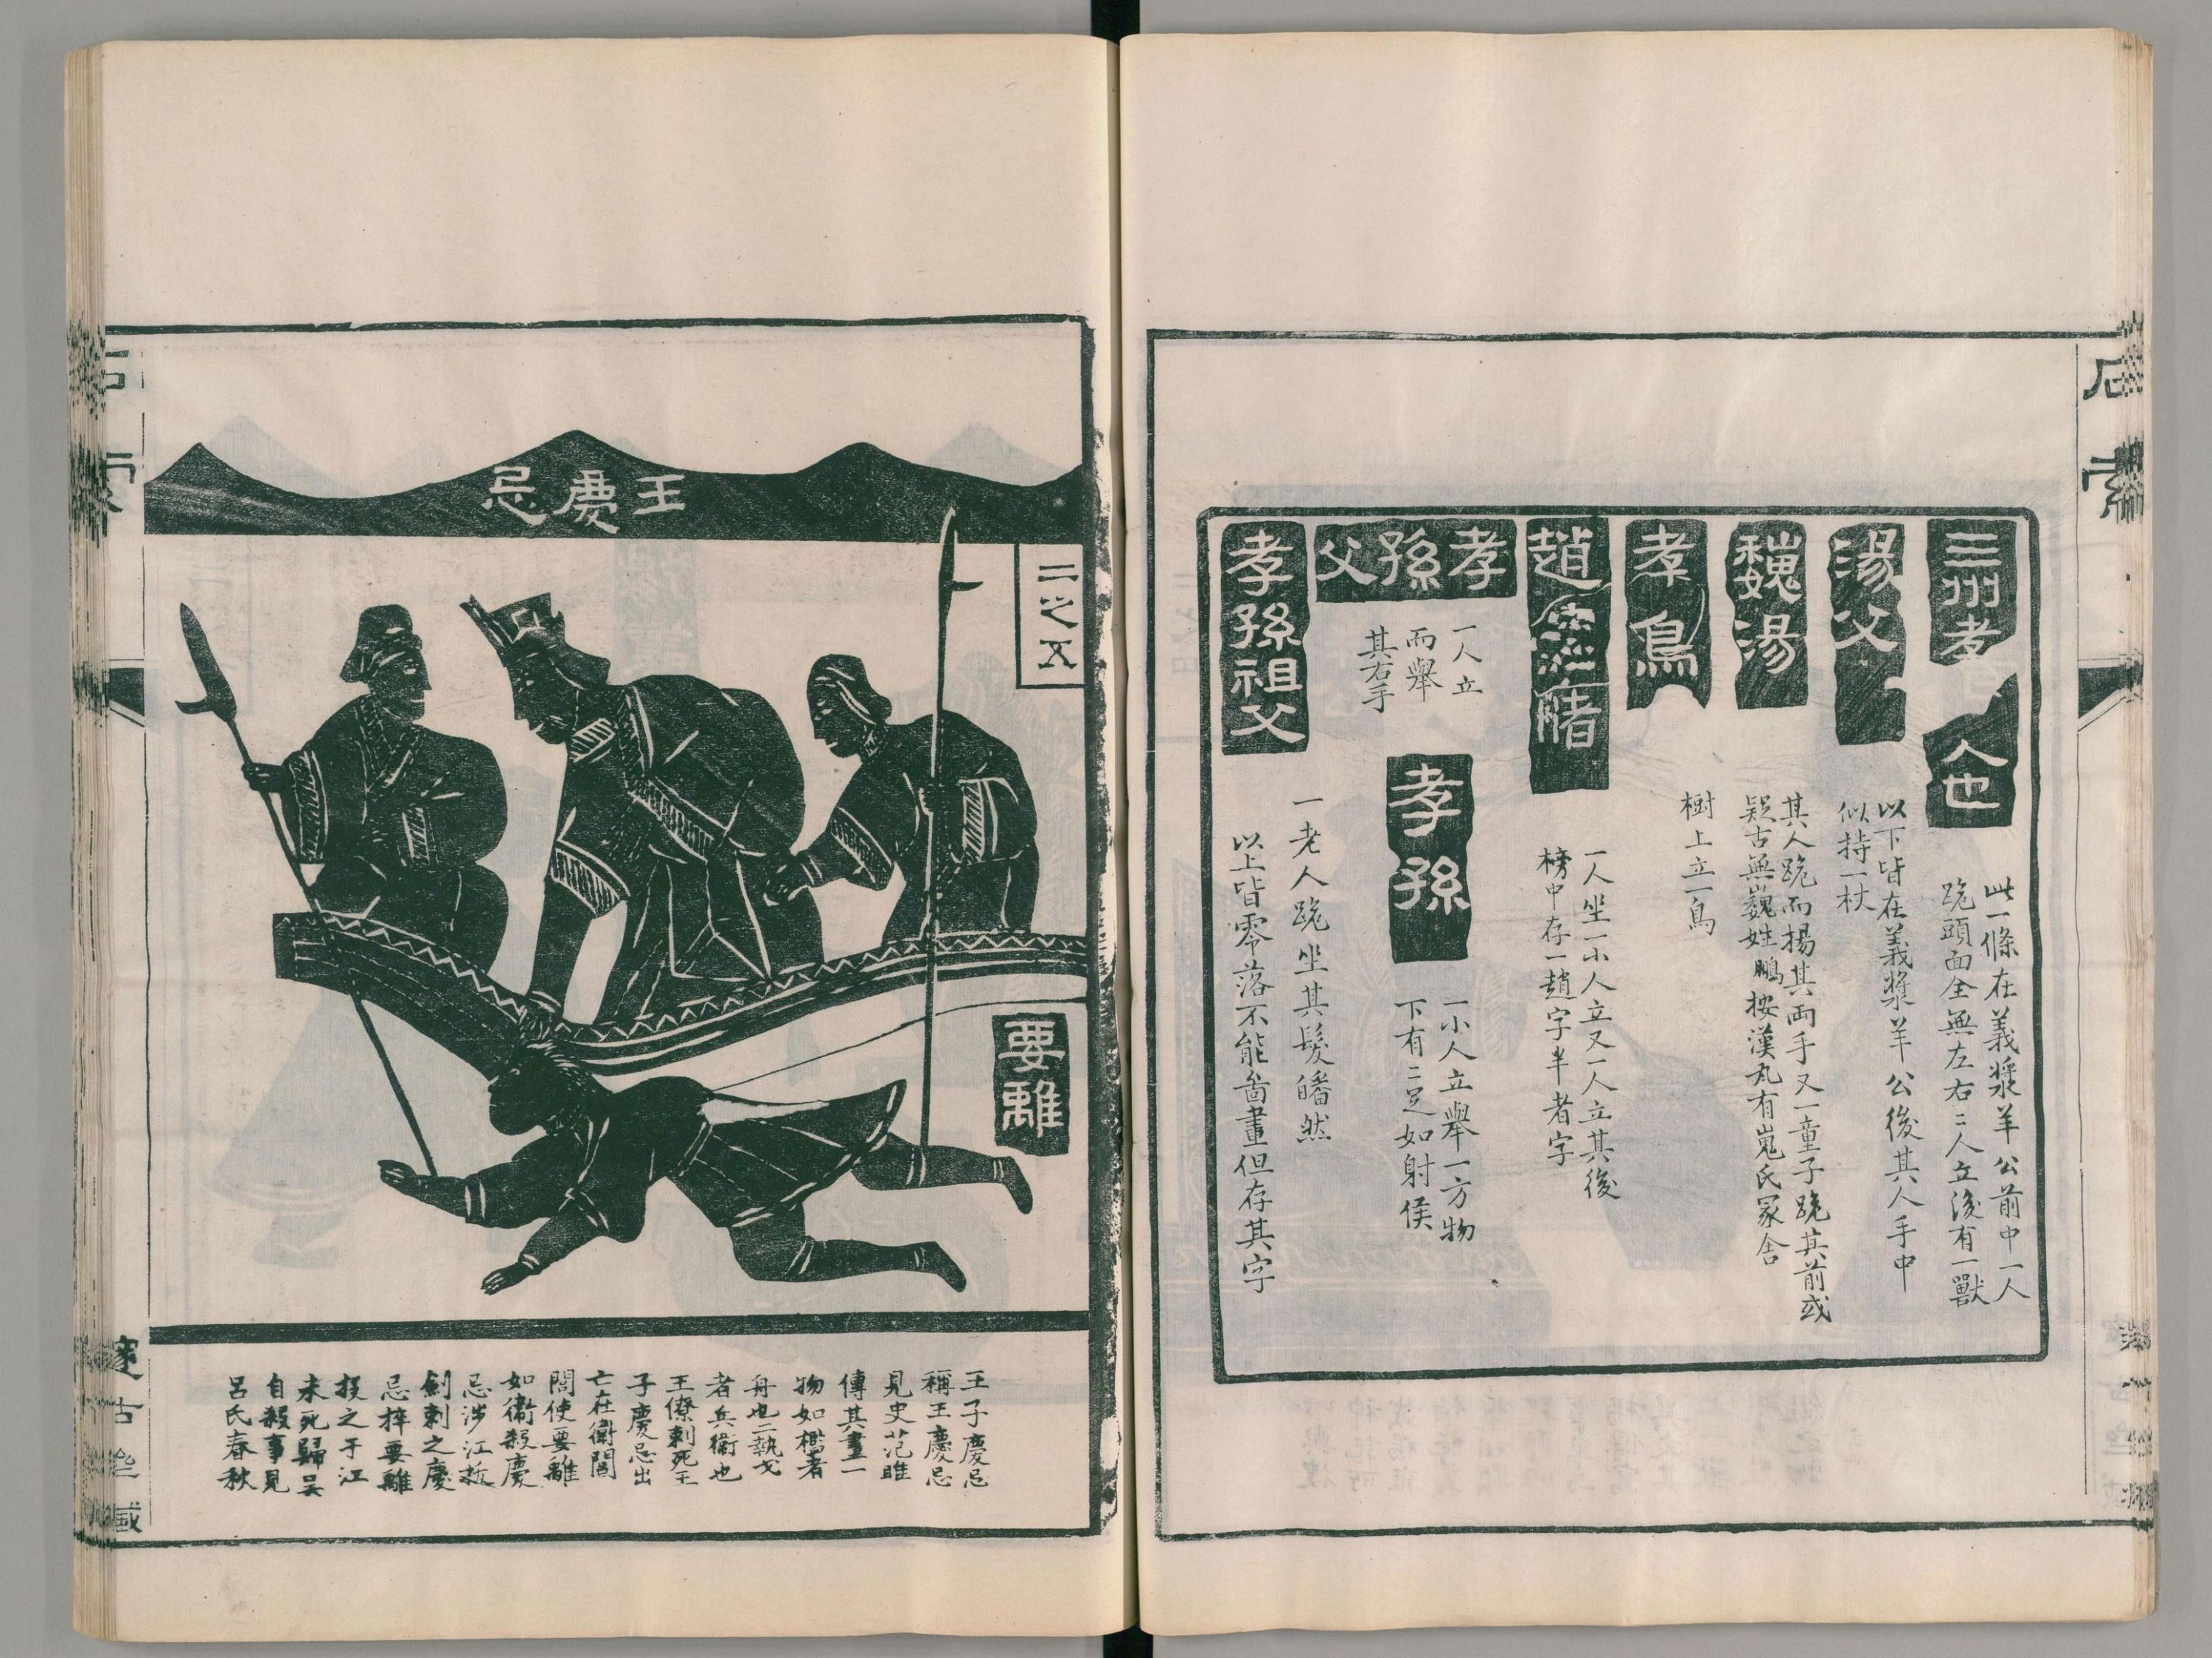 石索
三州孝
人也
此一條在義漿羊公前中一人
跪頭面全無左右二人立後有一獸
湯父
以下皆在義漿羊公後其人手中
似持一杖
魏湯
其人跪而揚其兩手又一童子跪其前或
疑古無巍姓鵬按漢丸有嵬氏冢舍
孝烏
樹上立一鳥
趙
一人坐一小人立又一人立其後
榜中存一趙字半者字
孝孫父
一人立
而舉
其右手
孝孫
一小人立舉一方物
下有二足如射侯
孝孫祖父
一老人跪坐其髮皤然
以上皆零落不能畫但存其字
王慶忌
二之五
要離
王子慶忌
稱王慶忌
見史范雎
傳其畫一
物如檻者
舟也二執戈
者兵衛也
王僚刺死王
子慶忌出
亡在衛闔
閭使要離
如衛殺慶
忌涉江拔
劍刺之慶
忌捽要離
投之于江
未死歸吴
自殺事見
呂氏春秋
石索
邃古齋藏